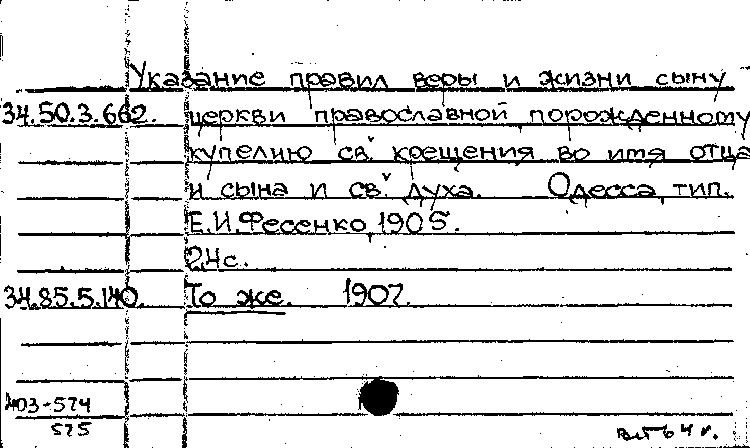 Указание правил веры и жизни сыну
34.50.3.662. церкви православной, порожденному
купелию св. крещения во имя отца
и сына и св. духа. Одесса, тип.
Е.И.Фесенко, 1905.
24с.
34.85.5.140. То же. 1907.
403-574
575